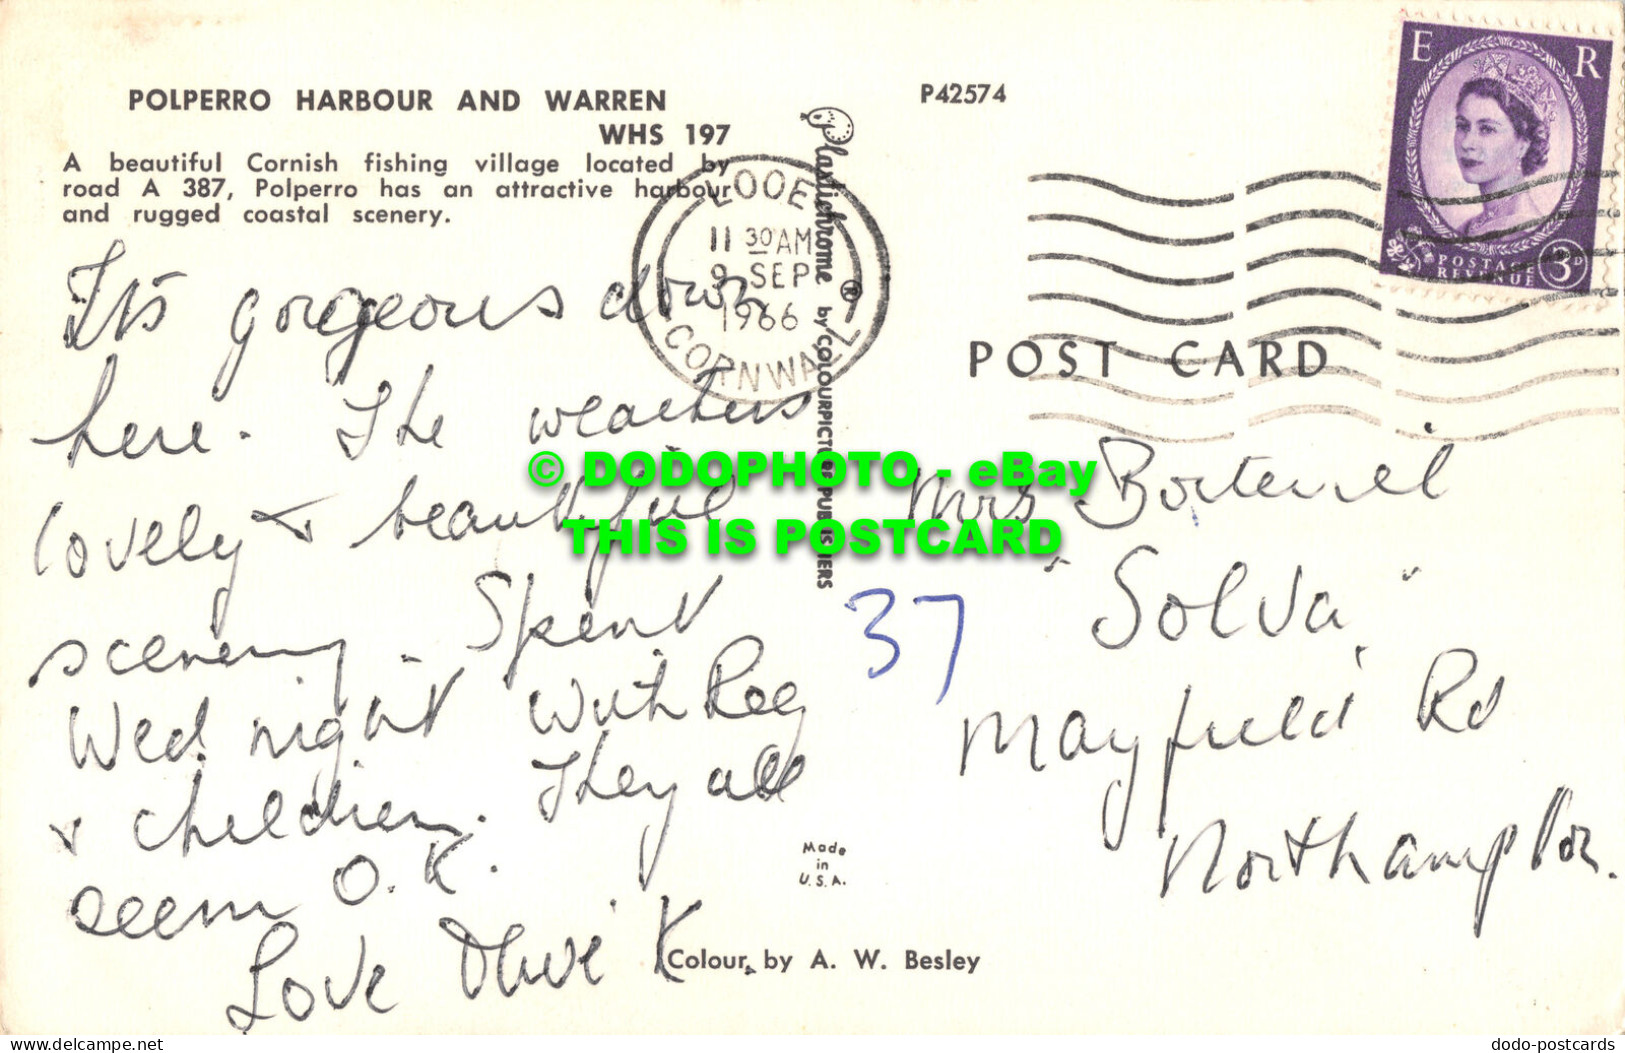 POLPERRO HARBOUR AND WARREN
WHS 197
A beautiful Cornish fishing village located by
road A 387, Polperro has an attractive harbour
and rugged coastal scenery.
It's gorgeous down
here. The weathers
lovely & beautiful
scenery. Spent
Wed. night with Reg
& children. They all
seem O.K.
Love Olive K.
P42574
Plastichrome ® by COLOURPICTURE PUBLISHERS
LOOE
11 30 AM
9 SEP
1966
CORNWALL
E R
POSTAGE
REVENUE
3D
POST CARD
Mrs
"Solva"
Mayfield Rd
Northampton.
37
Made
in
U.S.A.
Colour by A. W. Besley
© DODOPHOTO - eBay
THIS IS POSTCARD
delcampe.net
dodo-postcards